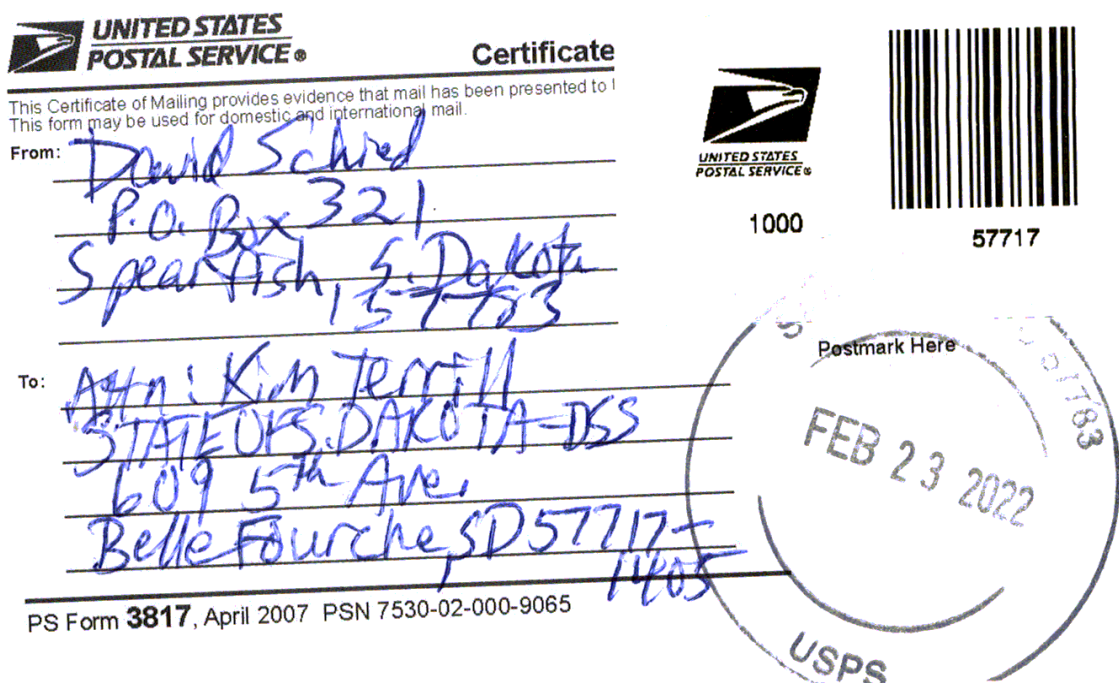 UNITED STATES
POSTAL SERVICE®
Certificate
This Certificate of Mailing provides evidence that mail has been presented to
This form may be used for domestic and international mail.
From:
David Schied
P.O. Box 321
Spearfish, S. Dakota
57783
To:
Attn: Kim Terrill
STATE OF S. DAKOTA-DSS
609 5th Ave.
Belle Fourche, SD 57717-
1405
PS Form 3817, April 2007 PSN 7530-02-000-9065
UNITED STATES
POSTAL SERVICE®
1000
57717
Postmark Here
57783
FEB 23 2022
USPS